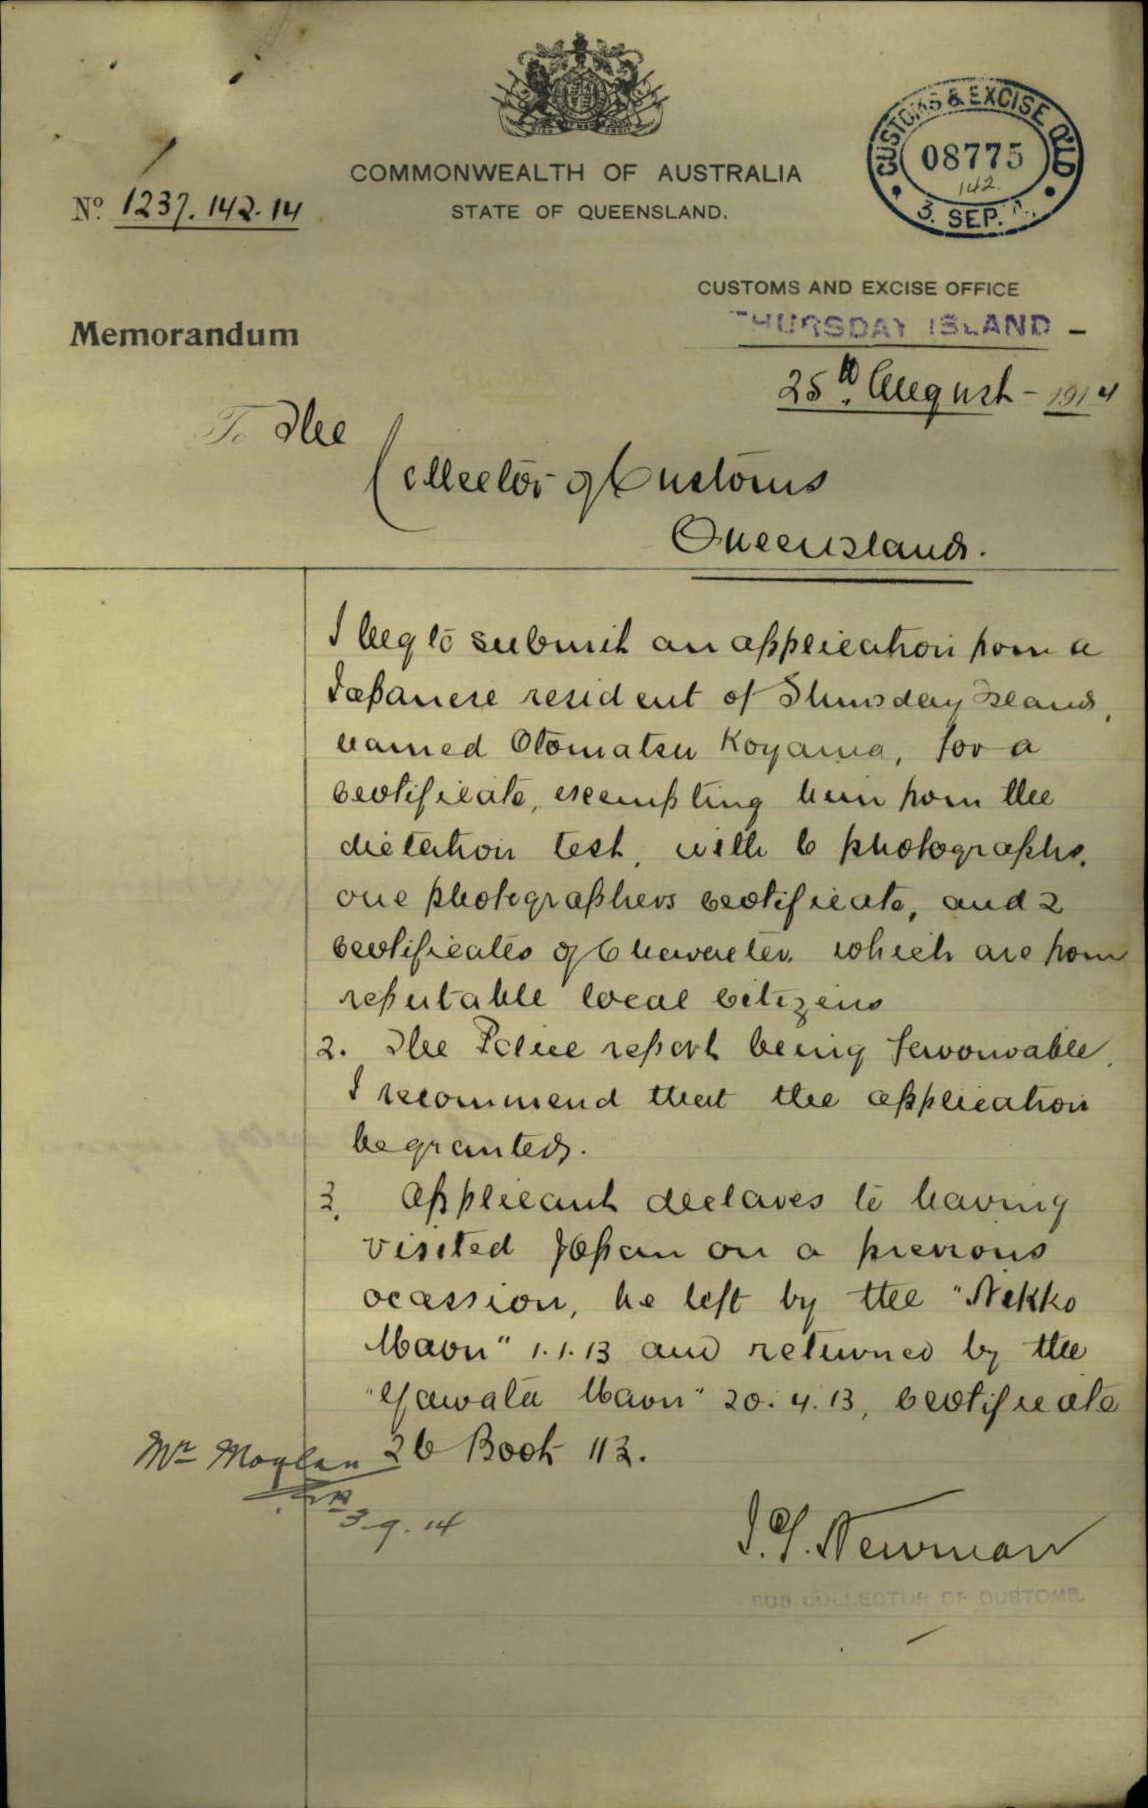 COMMONWEALTH OF AUSTRALIA
STATE OF QUEENSLAND.
CUSTOMS & EXCISE Q'LD
08775
142.
3. SEP.
No. 1237.142.14
CUSTOMS AND EXCISE OFFICE
THURSDAY ISLAND -
Memorandum
25th August - 1914
To The
Collector of Customs
Queensland.
I beg to submit an application from a
Japanese resident of Thursday Island,
named Otomatsu Koyama, for a
certificate, exempting him from the
dictation test, with 6 photographs,
one photographers certificate, and 2
certificates of Character. which are from
reputable local citizens
2. The Police report being favourable,
I recommend that the application
be granted.
3. Applicant declares to having
visited Japan on a previous
ocassion, he left by the "Nikko
Maru" 1.1.13 and returned by the
"Yawata Maru" 20.4.13, certificate
26 Book 113.
Mr Moylan
3.9.14
J.G. Newman
SUB COLLECTOR OF CUSTOMS.